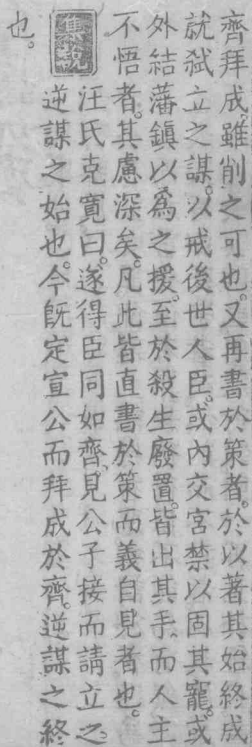 齊拜成。雖削之可也又再書於策者。於以著其始終成
就弑立之謀。以戒後世人臣。或內交宮禁以固其寵。或
外結藩鎮以為之援。至於殺生廢置。皆出其手。而人主
不悟者。其慮深矣。凡此皆直書於策而義自見者也。
集說 汪氏克寬曰。遂得臣同如齊。見公子接而請立之。
逆謀之始也。今既定宣公而拜成於齊。逆謀之終
也。